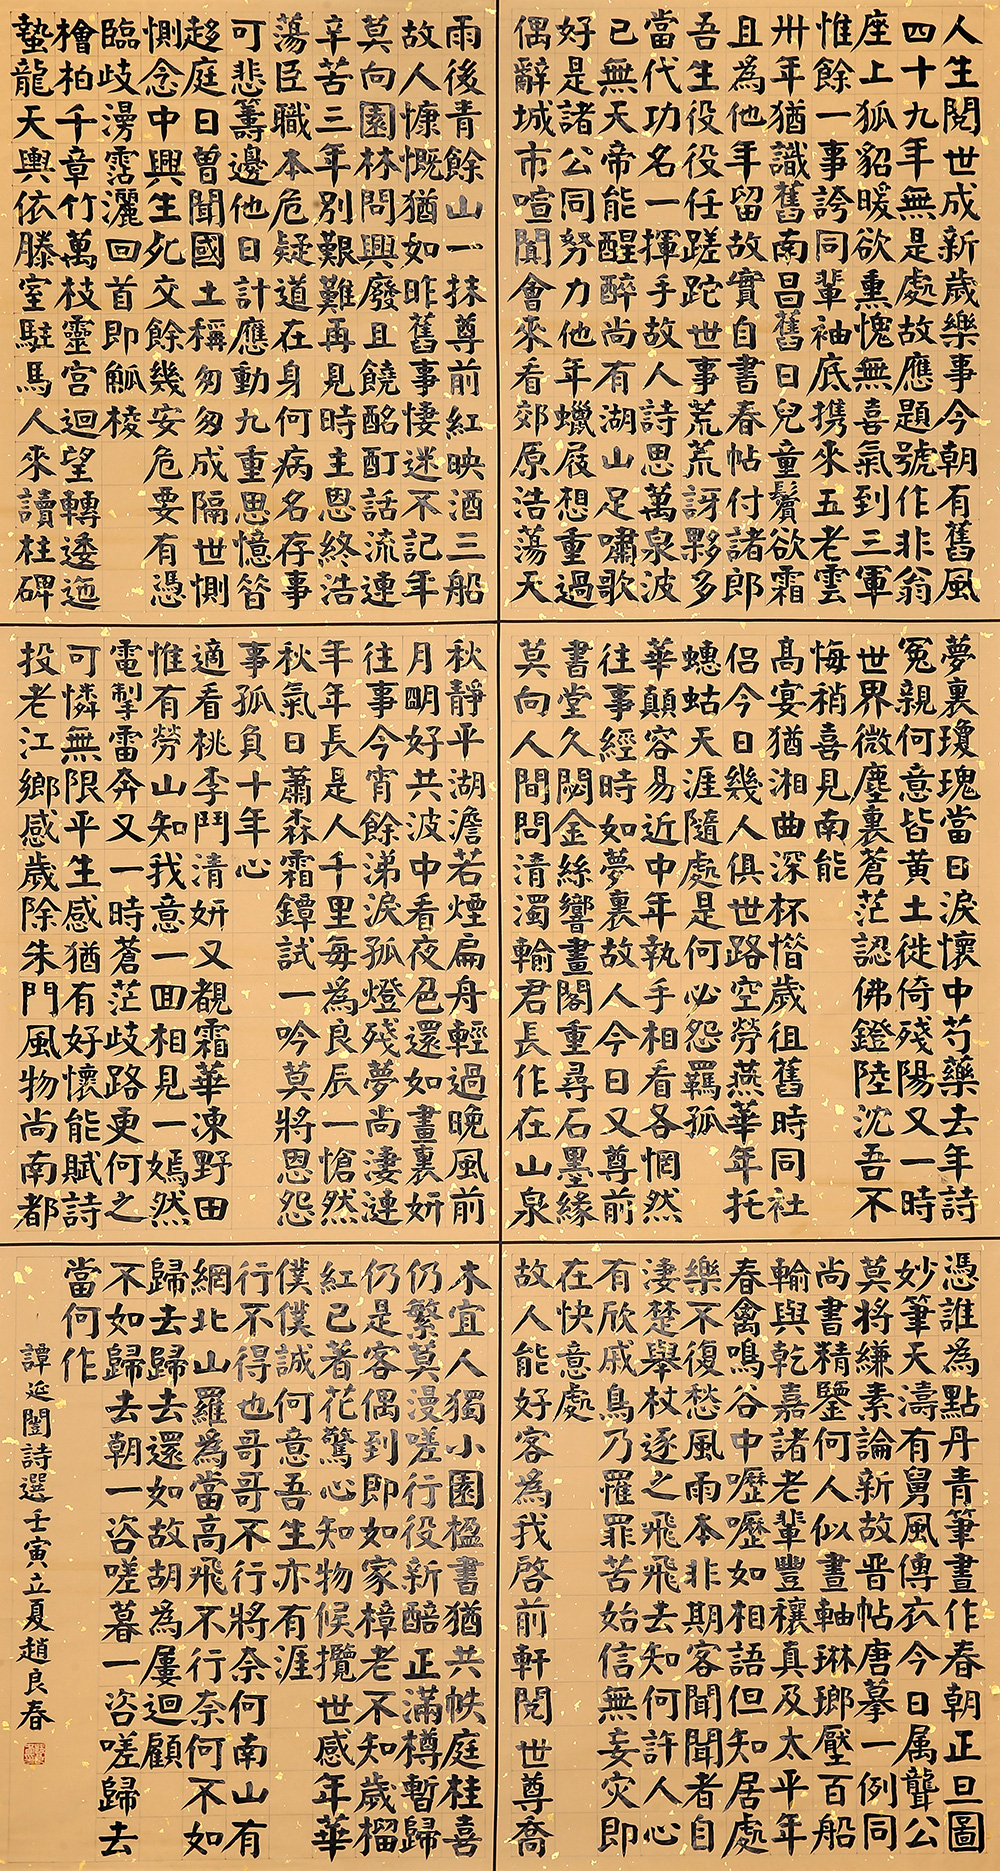 人生閱世成新歲樂事今朝有舊風
四十九年無是處故應題號作非翁
座上狐貂暖欲熏愧無喜氣到三軍
惟餘一事誇同輩袖底携來五老雲
卅年猶識舊南昌舊日兒童鬢欲霜
且為他年留故實自書春帖付諸郎
吾生役役任蹉跎世事荒荒訝夥多
當代功名一揮手故人詩思萬泉波
已無天帝能醒醉尚有湖山足嘯歌
好是諸公同努力他年蠟屐想重過
偶辭城市喧闐會來看郊原浩蕩天
雨後青餘山一抹尊前紅映酒三船
故人慷慨猶如昨舊事悽迷不記年
莫向園林問興廢且饒酩酊話流連
辛苦三年別艱難再見時主恩終浩
蕩臣職本危疑道在身何病名存事
可悲籌邊他日計應動九重思憶昝
趍庭日曽聞國土稱匆匆成隔世惻
惻念中興生死交餘幾安危要有憑
臨歧漫霑灑回首即觚棱
檜柏千章竹萬枝靈宮迴望轉逶迤
蟄龍天輿依滕室駐馬人來讀柱碑
夢裏瓊瑰當日淚懷中芍藥去年詩
冤親何意皆黃土徙倚殘陽又一時
世界微塵裏蒼茫認佛鐙陸沈吾不
悔稍喜見南能
高宴猶湘曲深杯憯歲徂舊時同社
侶今日幾人俱世路空勞燕華年托
蟪蛄天涯隨處是何必怨羈孤
華顛容易近中年執手相看各惘然
往事經時如夢裏故人今日又尊前
書堂久閟金絲響畫閣重尋石墨緣
莫向人間問清濁輸君長作在山泉
秋靜平湖澹若煙扁舟輕過晚風前
月朙好共波中看夜色還如畫裏妍
往事今宵餘涕淚孤燈殘夢尚淒漣
年年長是人千里每為良辰一愴然
秋氣日蕭森霜鐔試一吟莫將恩怨
事孤負十年心
適看桃李鬥清妍又覩霜華凍野田
惟有勞山知我意一回相見一嫣然
電掣雷奔又一時蒼茫歧路更何之
可憐無限平生感猶有好懷能賦詩
投老江鄉感歲除朱門風物尚南都
憑誰為點丹青筆畫作春朝正旦圖
妙筆天濤有舅風傳衣今日属聾公
莫將縑素論新故晋帖唐摹一例同
尚書精鑒何人似畫軸琳瑯壓百船
輸與乾嘉諸老輩豐穰真及太平年
春禽鳴谷中嚦嚦如相語但知居處
樂不復愁風雨本非期客聞聞者自
淒楚舉杖逐之飛飛去知何許人心
有欣戚鳥乃罹罪苦始信無妄灾即
在快意處
故人能好客為我啓前軒閱世尊喬
木宜人獨小園楹書猶共帙庭桂喜
仍繁莫漫嗟行役新醅正滿樽暫歸
仍是客偶到即如家樟老不知歲榴
紅已著花驚心知物候攬世感年華
僕僕誠何意吾生亦有涯
行不得也哥哥不行將奈何南山有
網北山羅為當高飛不行奈何不如
歸去歸去還如故胡為屢迴顧
不如歸去朝一咨嗟暮一咨嗟歸去
當何作
譚延闓詩選壬寅立夏趙良春